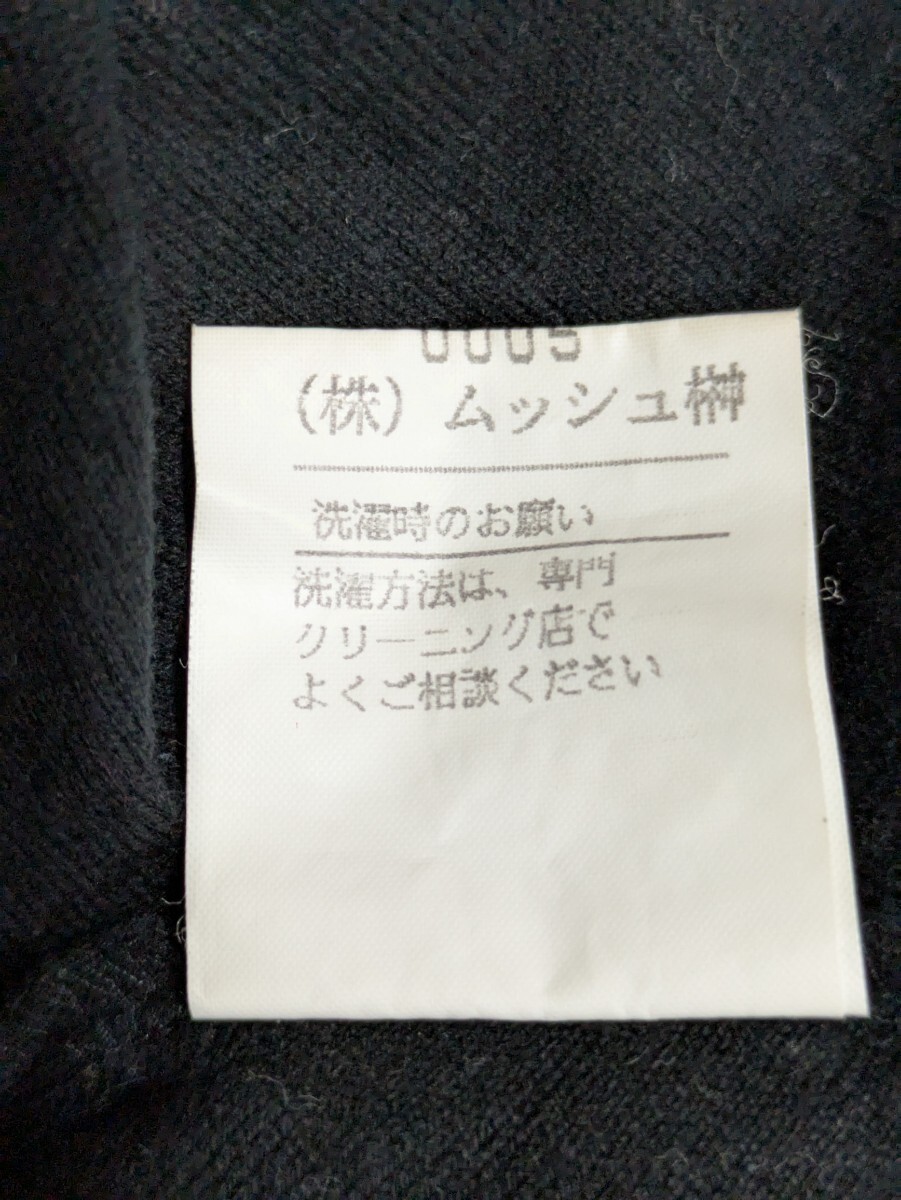 0005
(株)ムッシュ榊
洗濯時のお願い
洗濯方法は、専門
クリーニング店で
よくご相談ください